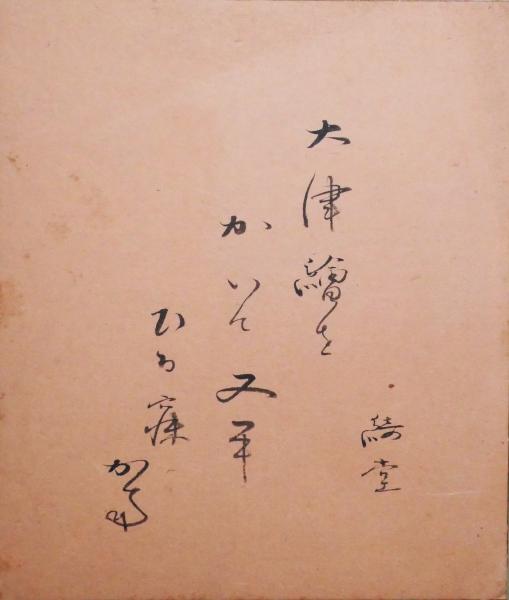 綺堂
大津繪を
かいて又平
ひる寐
かな